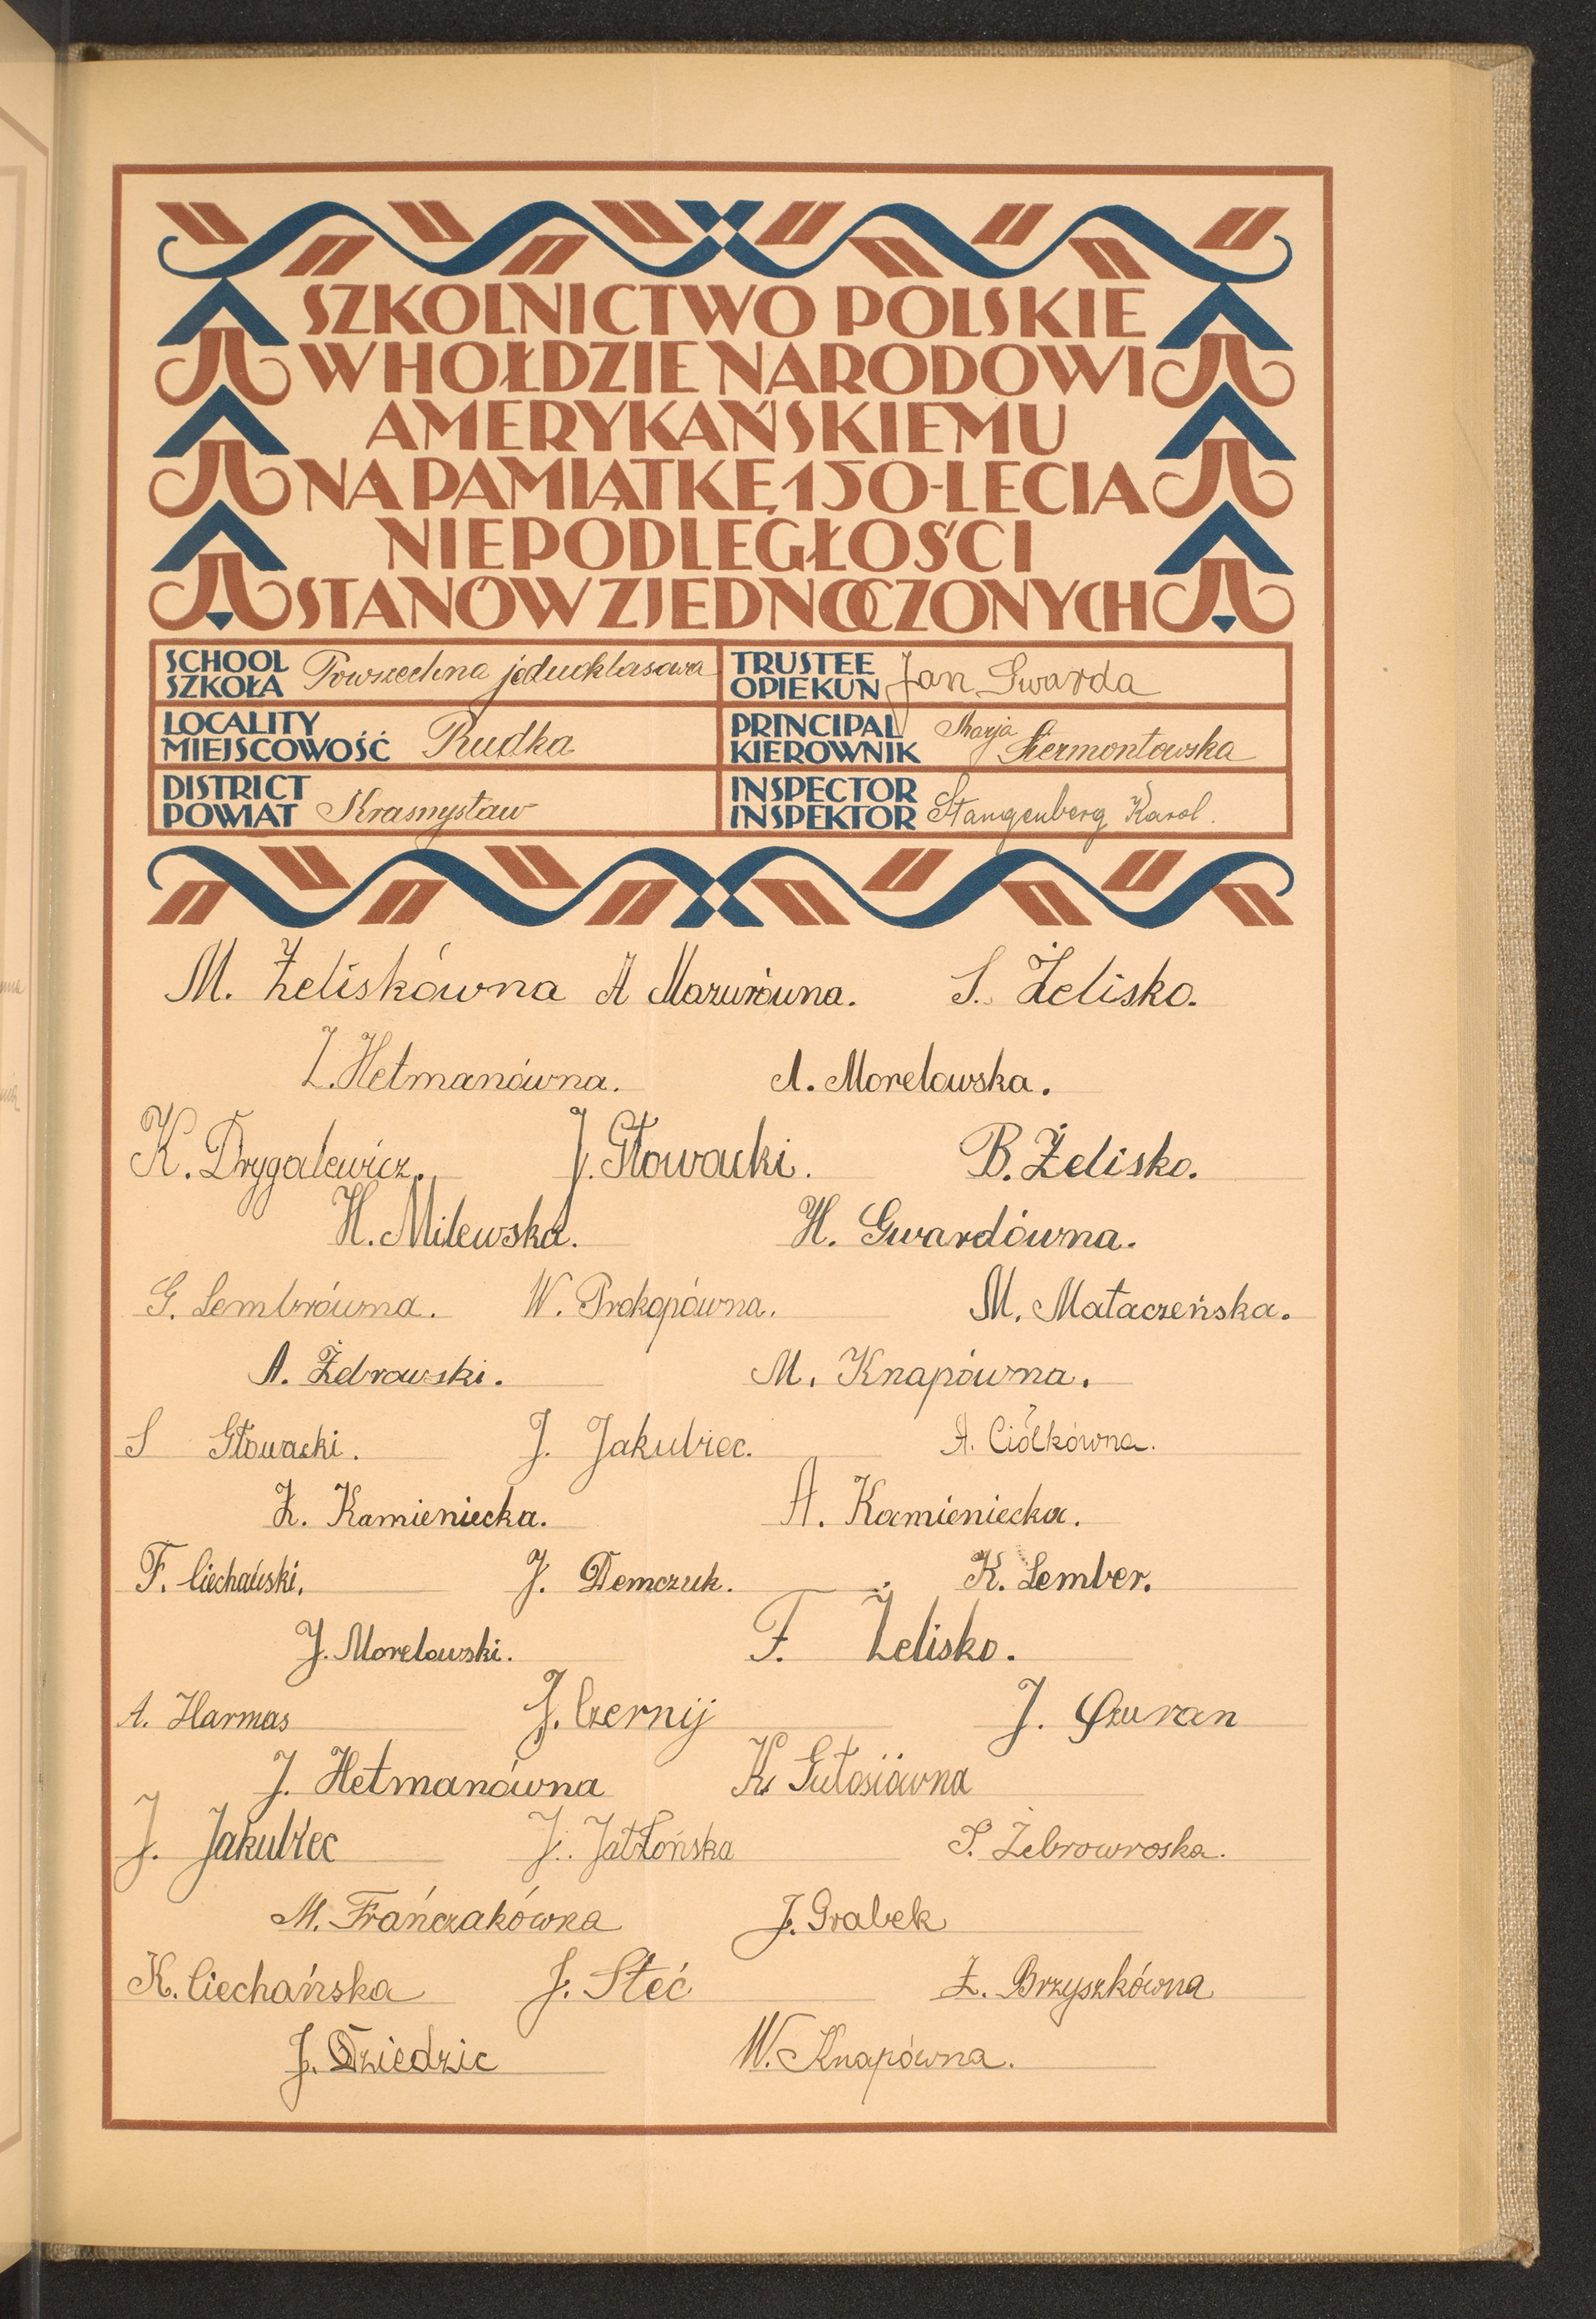 SZKOLNICTWO POLSKIE
W HOŁDZIE NARODOWI
AMERYKAŃSKIEMU
NA PAMIĄTKĘ 150-LECIA
NIEPODLEGŁOŚCI
STANÓW ZJEDNOCZONYCH
SCHOOL SZKOŁA Powszechna jednoklasowa TRUSTEE OPIEKUN Jan Gwarda
LOCALITY MIEJSCOWOŚĆ Rudka PRINCIPAL KIEROWNIK Marja Siermontowska
DISTRICT POWIAT Krasnystaw INSPECTOR INSPEKTOR Stangenberg Karol.
M. Żeliskówna A Mazurówna. S. Żelisko.
Z. Hetmanówna. A. Morelowska.
K. Drygalewicz. J. Głowacki. B. Żelisko.
H. Milewska. H. Gwardówna.
G. Lembrówna. W. Prokopówna. M. Mataczeńska.
A. Żebrowski. M. Knapówna.
S Głowacki. J. Jakubiec. A. Ciółkówna.
Z. Kamieniecka. A. Kamieniecka.
F. Ciechański. J. Demczuk. K. Lember.
J. Morelowski. F. Żelisko.
A. Harmas J. Czernij J. Czuran
J. Hetmanówna K. Gułosiówna
J. Jakubiec J. Jabłońska S. Żebrowroska.
M. Frańczakówna J. Grabek
K. Ciechańska J. Steć Z. Brzyszkówna
J. Dziedzic W. Knapówna.